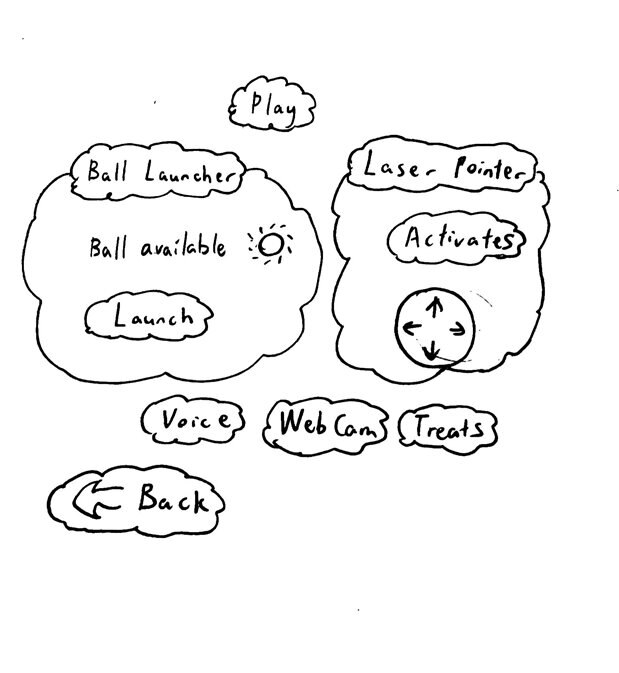 Play
Ball Launcher
Laser Pointer
Ball available
Activates
Launch
Voice
Web Cam
Treats
Back